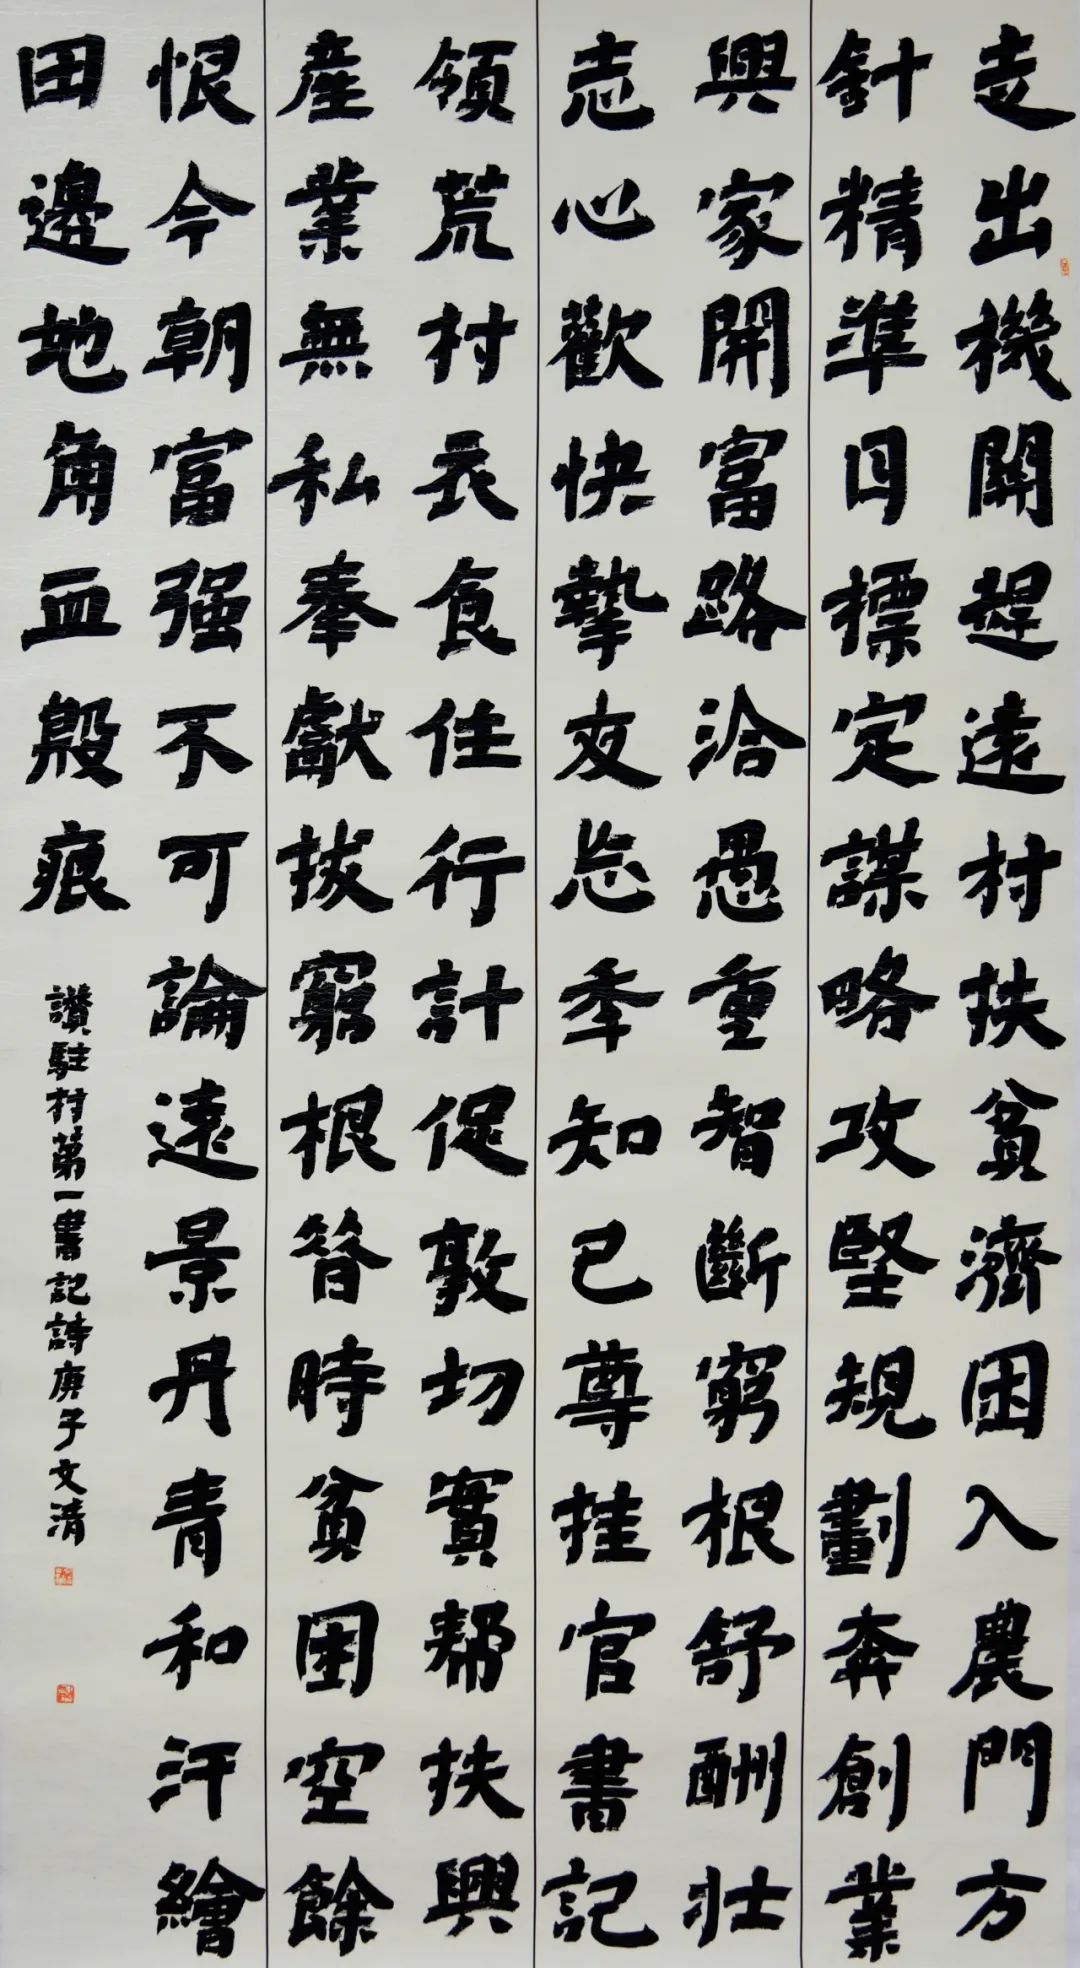 走出機關赶遠村扶貧濟困入農門方
針精準目標定謀略攻堅規劃奔創業
興家開富路治愚重智斷窮根舒酬壯
志心歡快摯友忘年知己尊挂官書記
領荒村衣食住行計促敦切實幫扶興
產業無私奉獻拔窮根昝時貧困空餘
恨今朝富强不可論遠景丹青和汗繪
田邊地角血殷痕
讚駐村第一書記詩庚子文清